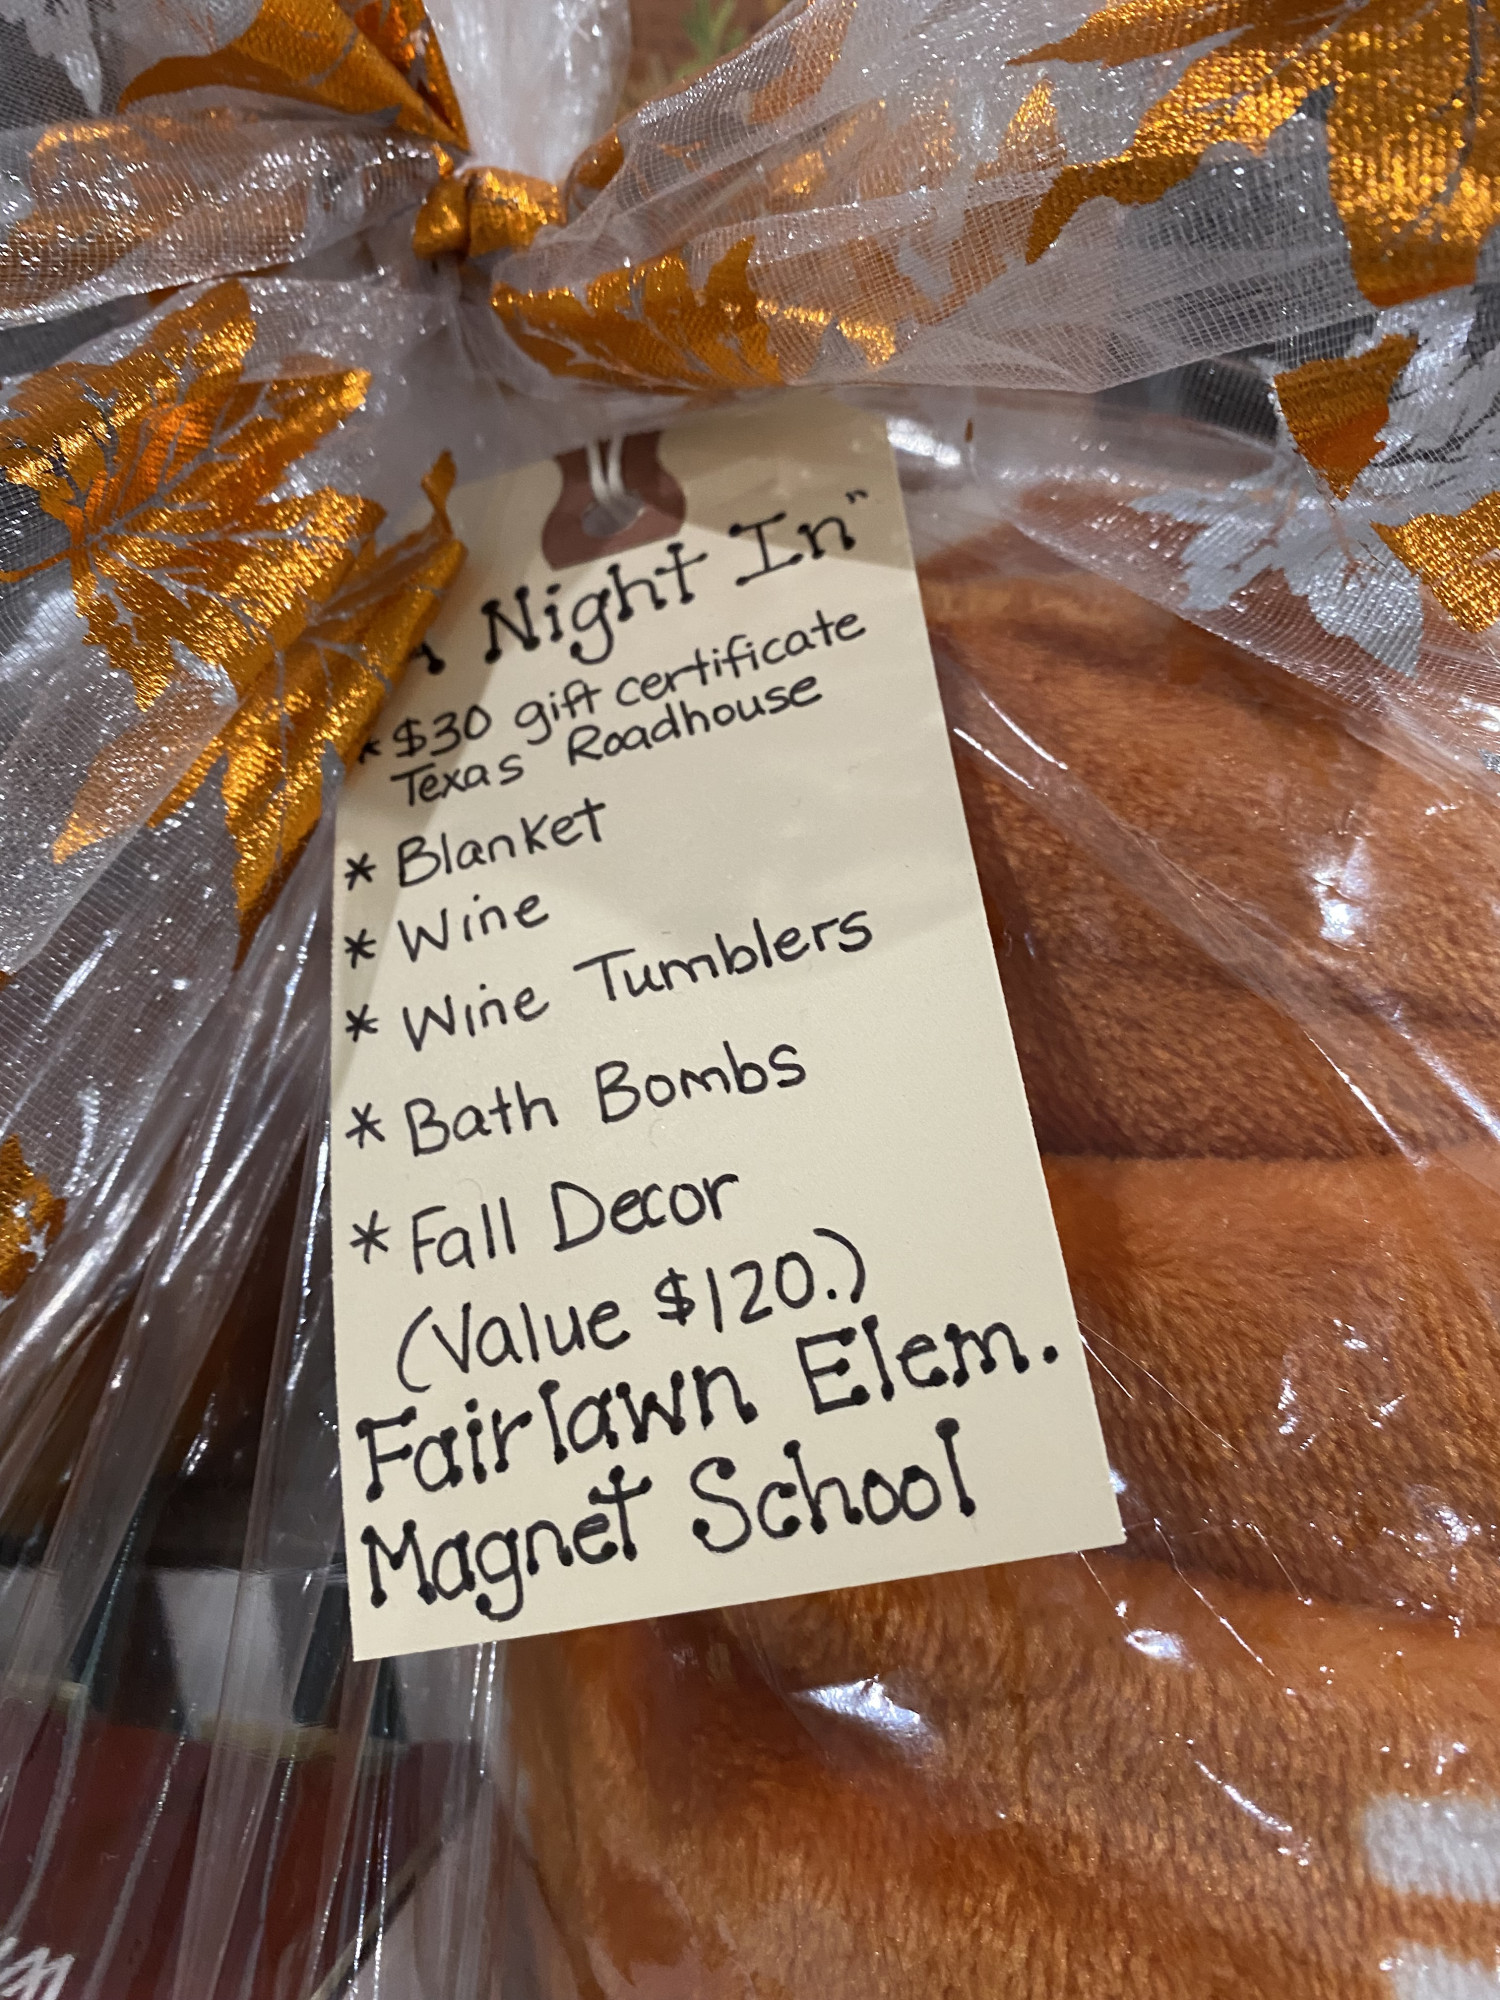 A Night In"
* $30 gift certificate
Texas Roadhouse
* Blanket
* Wine
* Wine Tumblers
* Bath Bombs
* Fall Decor
(Value $120.)
Fairlawn Elem.
Magnet School